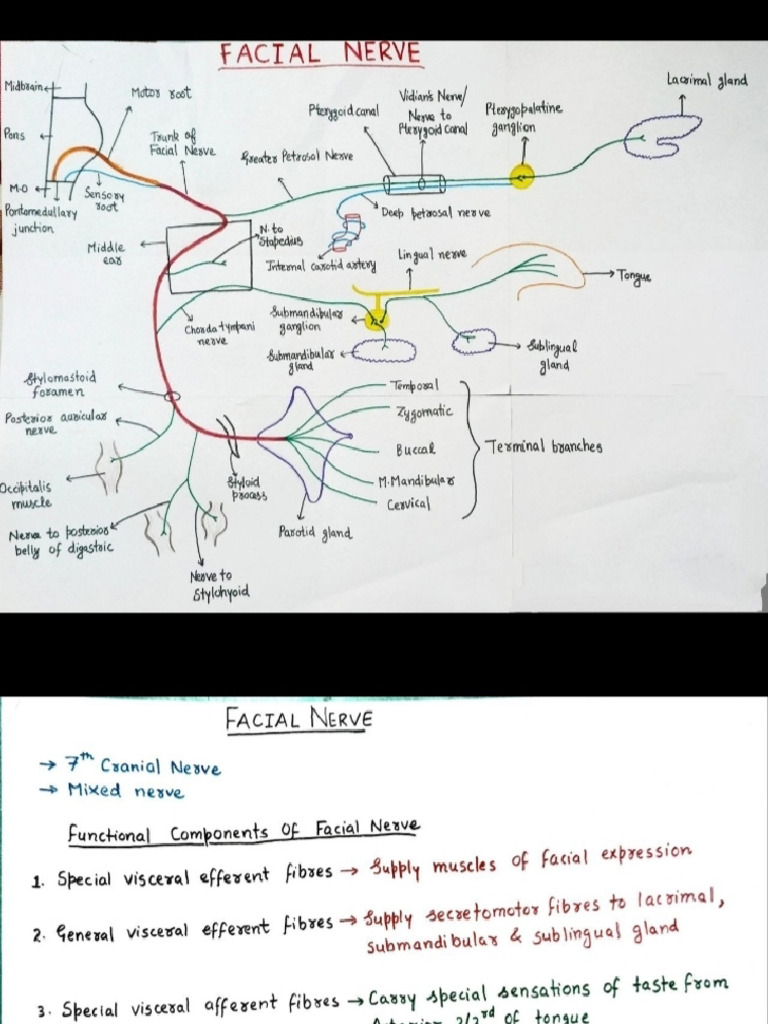 FACIAL NERVE
Midbrain
Motor root
Pons
Trunk of
Facial Nerve
M.O
Sensory
root
Pontomedullary
junction
Greater Petrosal Nerve
Pterygoid canal
Vidian's Nerve/
Nerve to
Pterygoid Canal
Pterygopalatine
ganglion
Lacrimal gland
Deep petrosal nerve
Middle
ear
N. to
Stapedius
Internal carotid artery
Lingual nerve
Tongue
Chorda tympani
nerve
Submandibular
ganglion
Submandibular
gland
Sublingual
gland
Stylomastoid
foramen
Posterior auricular
nerve
Occipitalis
muscle
Nerve to posterior
belly of digastric
Nerve to
Stylohyoid
Styloid
process
Parotid gland
Temporal
Zygomatic
Buccal
M.Mandibular
Cervical
Terminal branches
FACIAL NERVE
→ 7th Cranial Nerve
→ Mixed nerve
Functional Components Of Facial Nerve
1. Special visceral efferent fibres → Supply muscles of facial expression
2. General visceral efferent fibres → Supply secretomotor fibres to lacrimal,
submandibular & sublingual gland
3. Special visceral afferent fibres → Carry special sensations of taste from
2/3rd of tongue